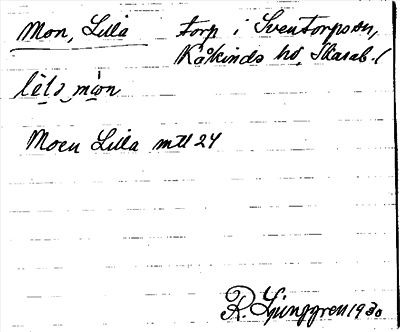 Mon, Lilla torp i Sventorps sn,
Kåkinds hd, Skarab. l
lẹlạ mọ̀n
Moen Lilla mtl 24
R. Ljunggren 1930